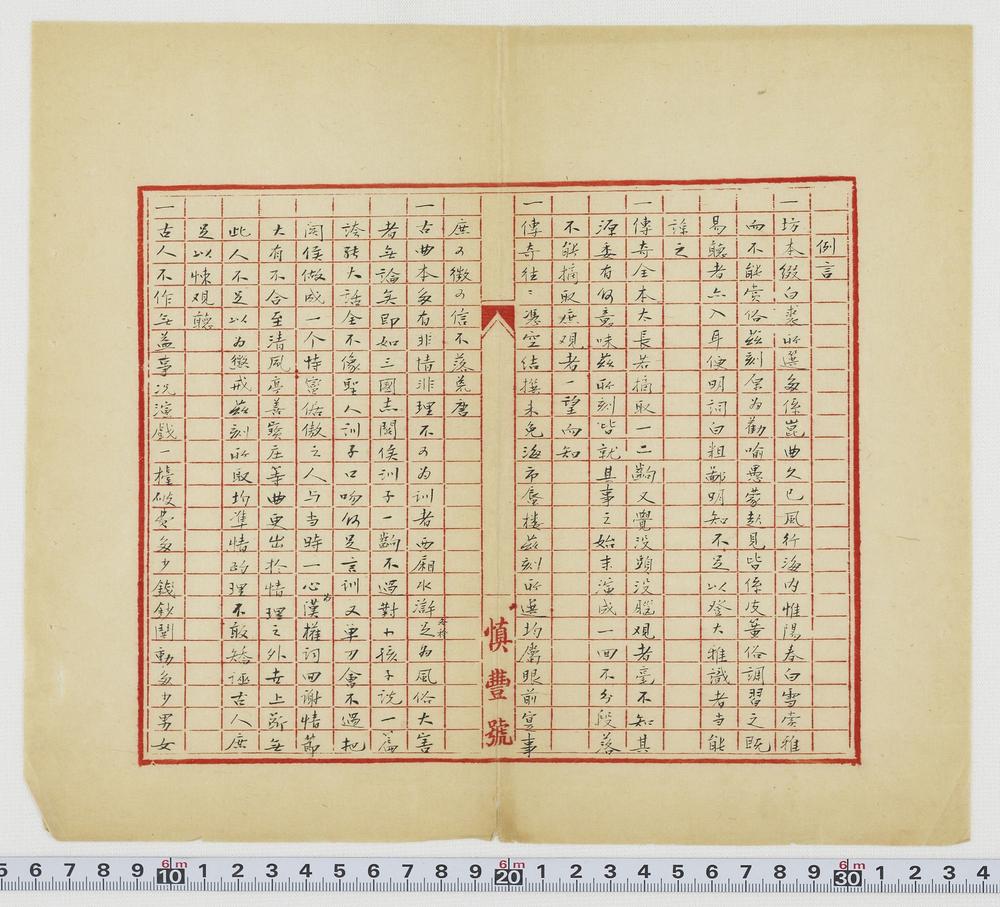 例言
一坊本綴白裘所選多係崑曲久已風行海內惟陽春白雪賞雅
而不能賞俗茲刻原為勸喻愚蒙起見皆係皮黃俗調習之既
易聽者亦入耳便明詞白粗鄙明知不足以登大雅識者當能
諒之
一傳奇全本大長若摘取一二齣又覺沒頭沒腦观者毫不知其
源委有何意味茲所刻皆就其事之始末演成一回不分段落
不能摘取庶观者一望而知
一傳奇往〻憑空結撰未免海市蜃樓茲刻所選均屬眼前寔事
庶可徵可信不落荒唐
一古曲本多有非情非理不可為訓者西廂水滸足為風俗大害
者無論矣即如三國志關侯訓子一齣不過對十孩子說一篇
誇張大話全不像聖人訓子口吻何足言訓又單刀會不過把
關侯做成一个恃富倨傲之人与当時一心為漢權詞回謝情節
大有不合至清風亭善寶庄等曲更出於情理之外世上斷無
此人不足以為懲戒茲刻所取均準情酌理不敢矯誣古人庶
足以悚观聽
一古人不作無益事况演戲一檯破費多少錢鈔鬨動多少男女
慎豐號
5 6 7 8 9 10 1 2 3 4 5 6 7 8 9 20 1 2 3 4 5 6 7 8 9 30 1 2 3 4
6m 6m 6m